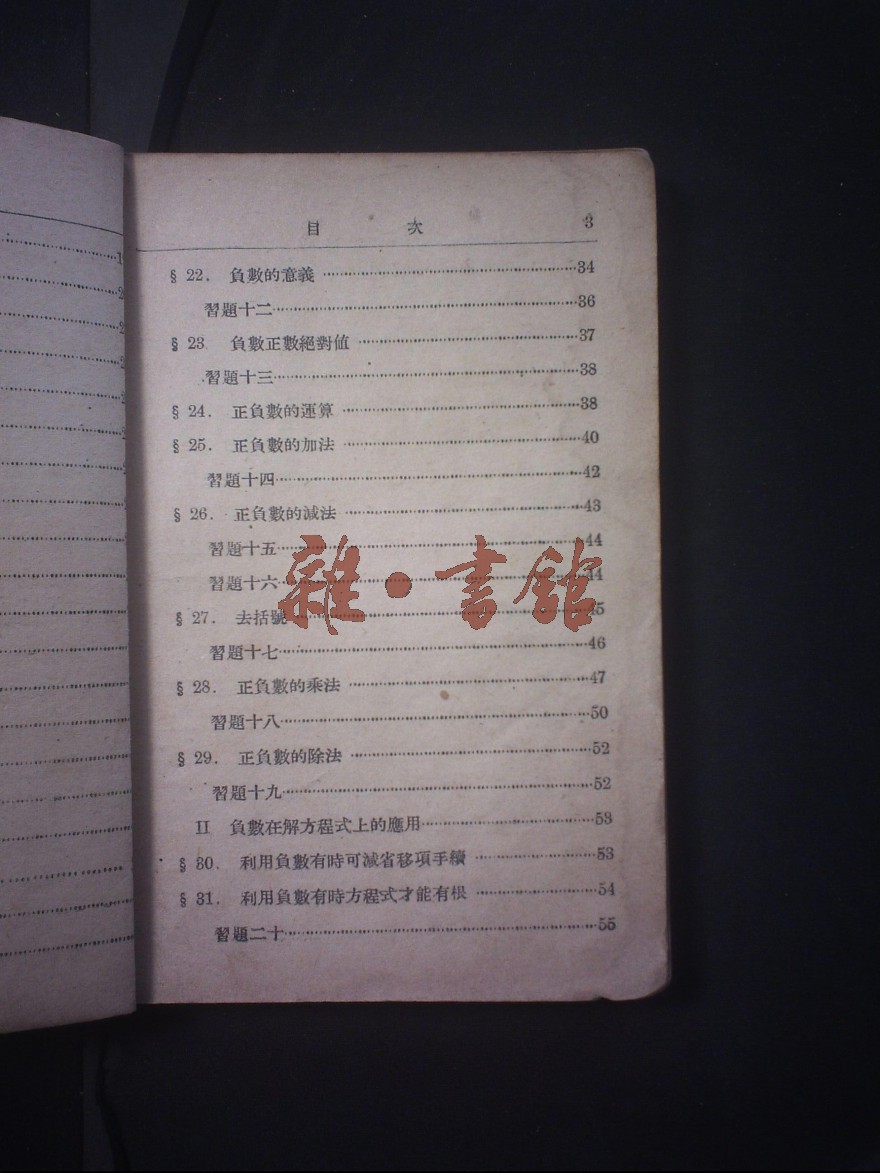 目 次 3
§ 22. 負數的意義 ……34
習題十二……36
§ 23 負數正數絕對值 ……37
習題十三……38
§ 24. 正負數的運算 ……38
§ 25. 正負數的加法 ……40
習題十四……42
§ 26. 正負數的減法 ……43
習題十五……44
習題十六……44
雜・書館
§ 27. 去括號……45
習題十七……46
§ 28. 正負數的乘法 ……47
習題十八……50
§ 29. 正負數的除法 ……52
習題十九……52
II 負數在解方程式上的應用……53
§ 30. 利用負數有時可減省移項手續 ……53
§ 31. 利用負數有時方程式才能有根 ……54
習題二十……55